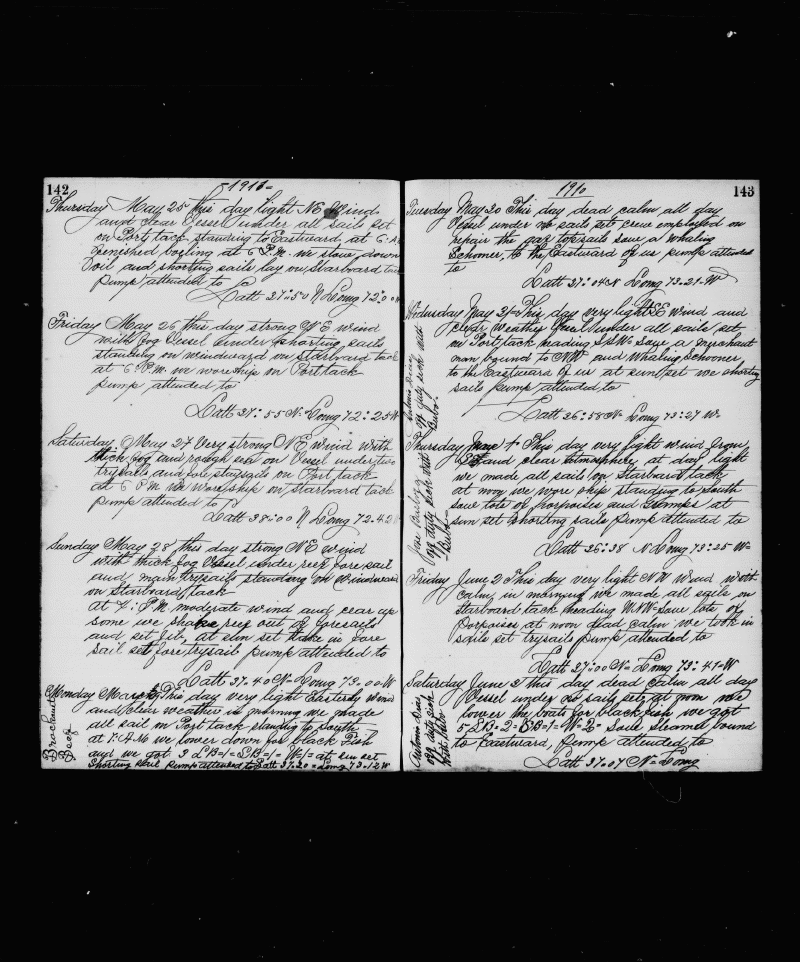 142
1910
Thursday May 25 this day light NE Wind
and clear Vessel under all sails set
on Port tack standing to Eastward, at 6: A
finished boyling at 6 P.M. we stove down
Oil and shorting sails lay on Starboard tack
pump attended to
Latt 37:50 N Long 72:0
Friday May 26 this day strong NE wind
with fog Vessel under shorting sails
standing on windward on starboard tack
at 6 P.M. we wore ship on Port tack
pump attended to
Latt 37:55 N. Long 72:25 W
Saturday May 27 Very strong NE wind with
thick fog and rough sea on Vessel under two
trysails and fore staysails on Port tack
at 6 P M we wore ship on starboard tack
pump attended to
Latt 38:00 N Long 72.42
Sunday May 28 this day strong NE wind
with thick fog Vessel under reef fore sail
and main trysails standing on windward
on starboard tack
at 4: P.M moderate wind and clear up
some we shake reef out of foresails
and set jib, at sun set take in fore
sail set fore trysail pump attended to
Latt 37.40 N Long 73.00 W
Monday March This day very light Easterly wind
and clear weather in morning we made
all sail on Port tack standing to South
at 7: A M we lower down for black Fish
and we got 3 L.B=1= S.B=1= W=1= at sun set
Shorting sail pump attended to Latt 37.20 = Long 73.12 W
143
1910
Tuesday May 30 This day dead calm all day
Vessel under no sails set crew employed on
repair the gaff topsails saw a Whaling
Schooner, to the Eastward of us pump attended
to
Latt 37:04 N Long 73-21-W
Wednesday May 31 This day very light SE wind and
clear weather Vessel under all sails set
on Port tack heading S.S.W. saw a merchant
man bound to NW and Whaling Schooner
to the Eastward of us at sun set we shorting
sails pump attended to
Latt 36:58 N Long 73:27 W
Thursday June 1 This day very light wind from
SE and clear atmosphere, at day light
we made all sails on Starboard tack
at noon we wore ship standing to South
saw lots of porpoises and at
sun set shorting sails pump attended to
Latt 36:38 N Long 73:25 W
Friday June 2 This day very light NW wind with
calm, in morning we made all sails on
Starboard tack heading WNW saw lots of
Porpoises at noon dead calm we took in
sails set trysails pump attended to
Latt 37:00 N Long 73:41-W
Saturday June 3 this day dead calm all day
Vessel under no sails set, at noon we
lower the boats for blackfish we got
5-L.B=2= S.B=1= W=2= saw Steamer bound
to Eastward, pump attended to
Latt 37.07 N Long
off duty sick with
off duty sick with
Antonio Diaz
off duty sick